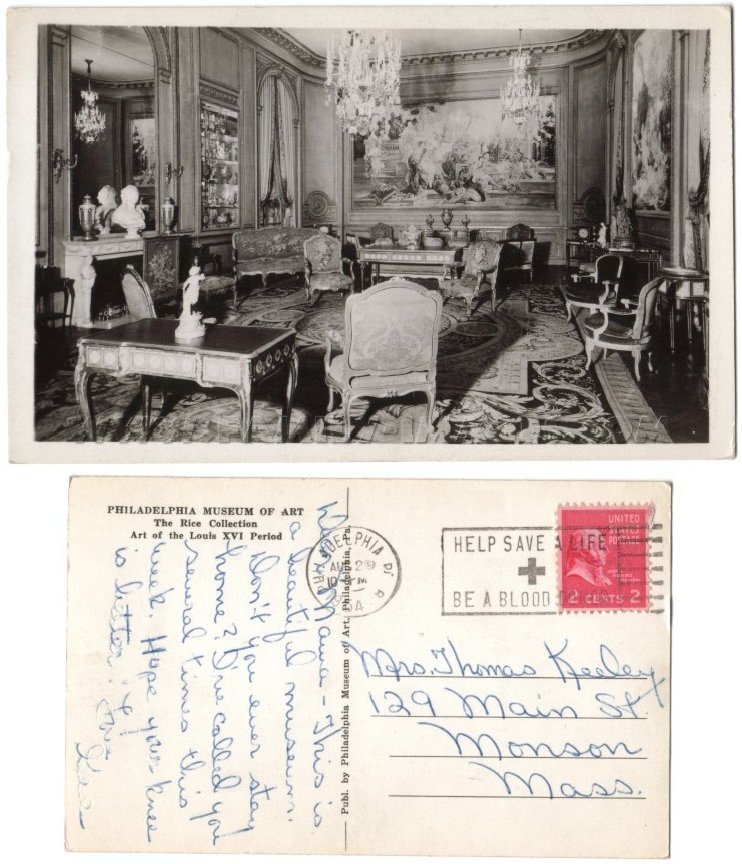 PHILADELPHIA MUSEUM OF ART
The Rice Collection
Art of the Louis XVI Period
Nana - This is
a beautiful museum.
Don't you ever stay
home? I've called you
several times this
week. Hope your knee
is better! Love
Publ. by Philadelphia Museum of Art, Philadelphia, Pa.
PHILADELPHIA PA
AUG 2
PM
54
HELP SAVE A LIFE
BE A BLOOD
UNITED
STATES
POSTAGE
JOHN
ADAMS
2 CENTS 2
Mrs. Thomas Keeley
129 Main St.
Monson
Mass.